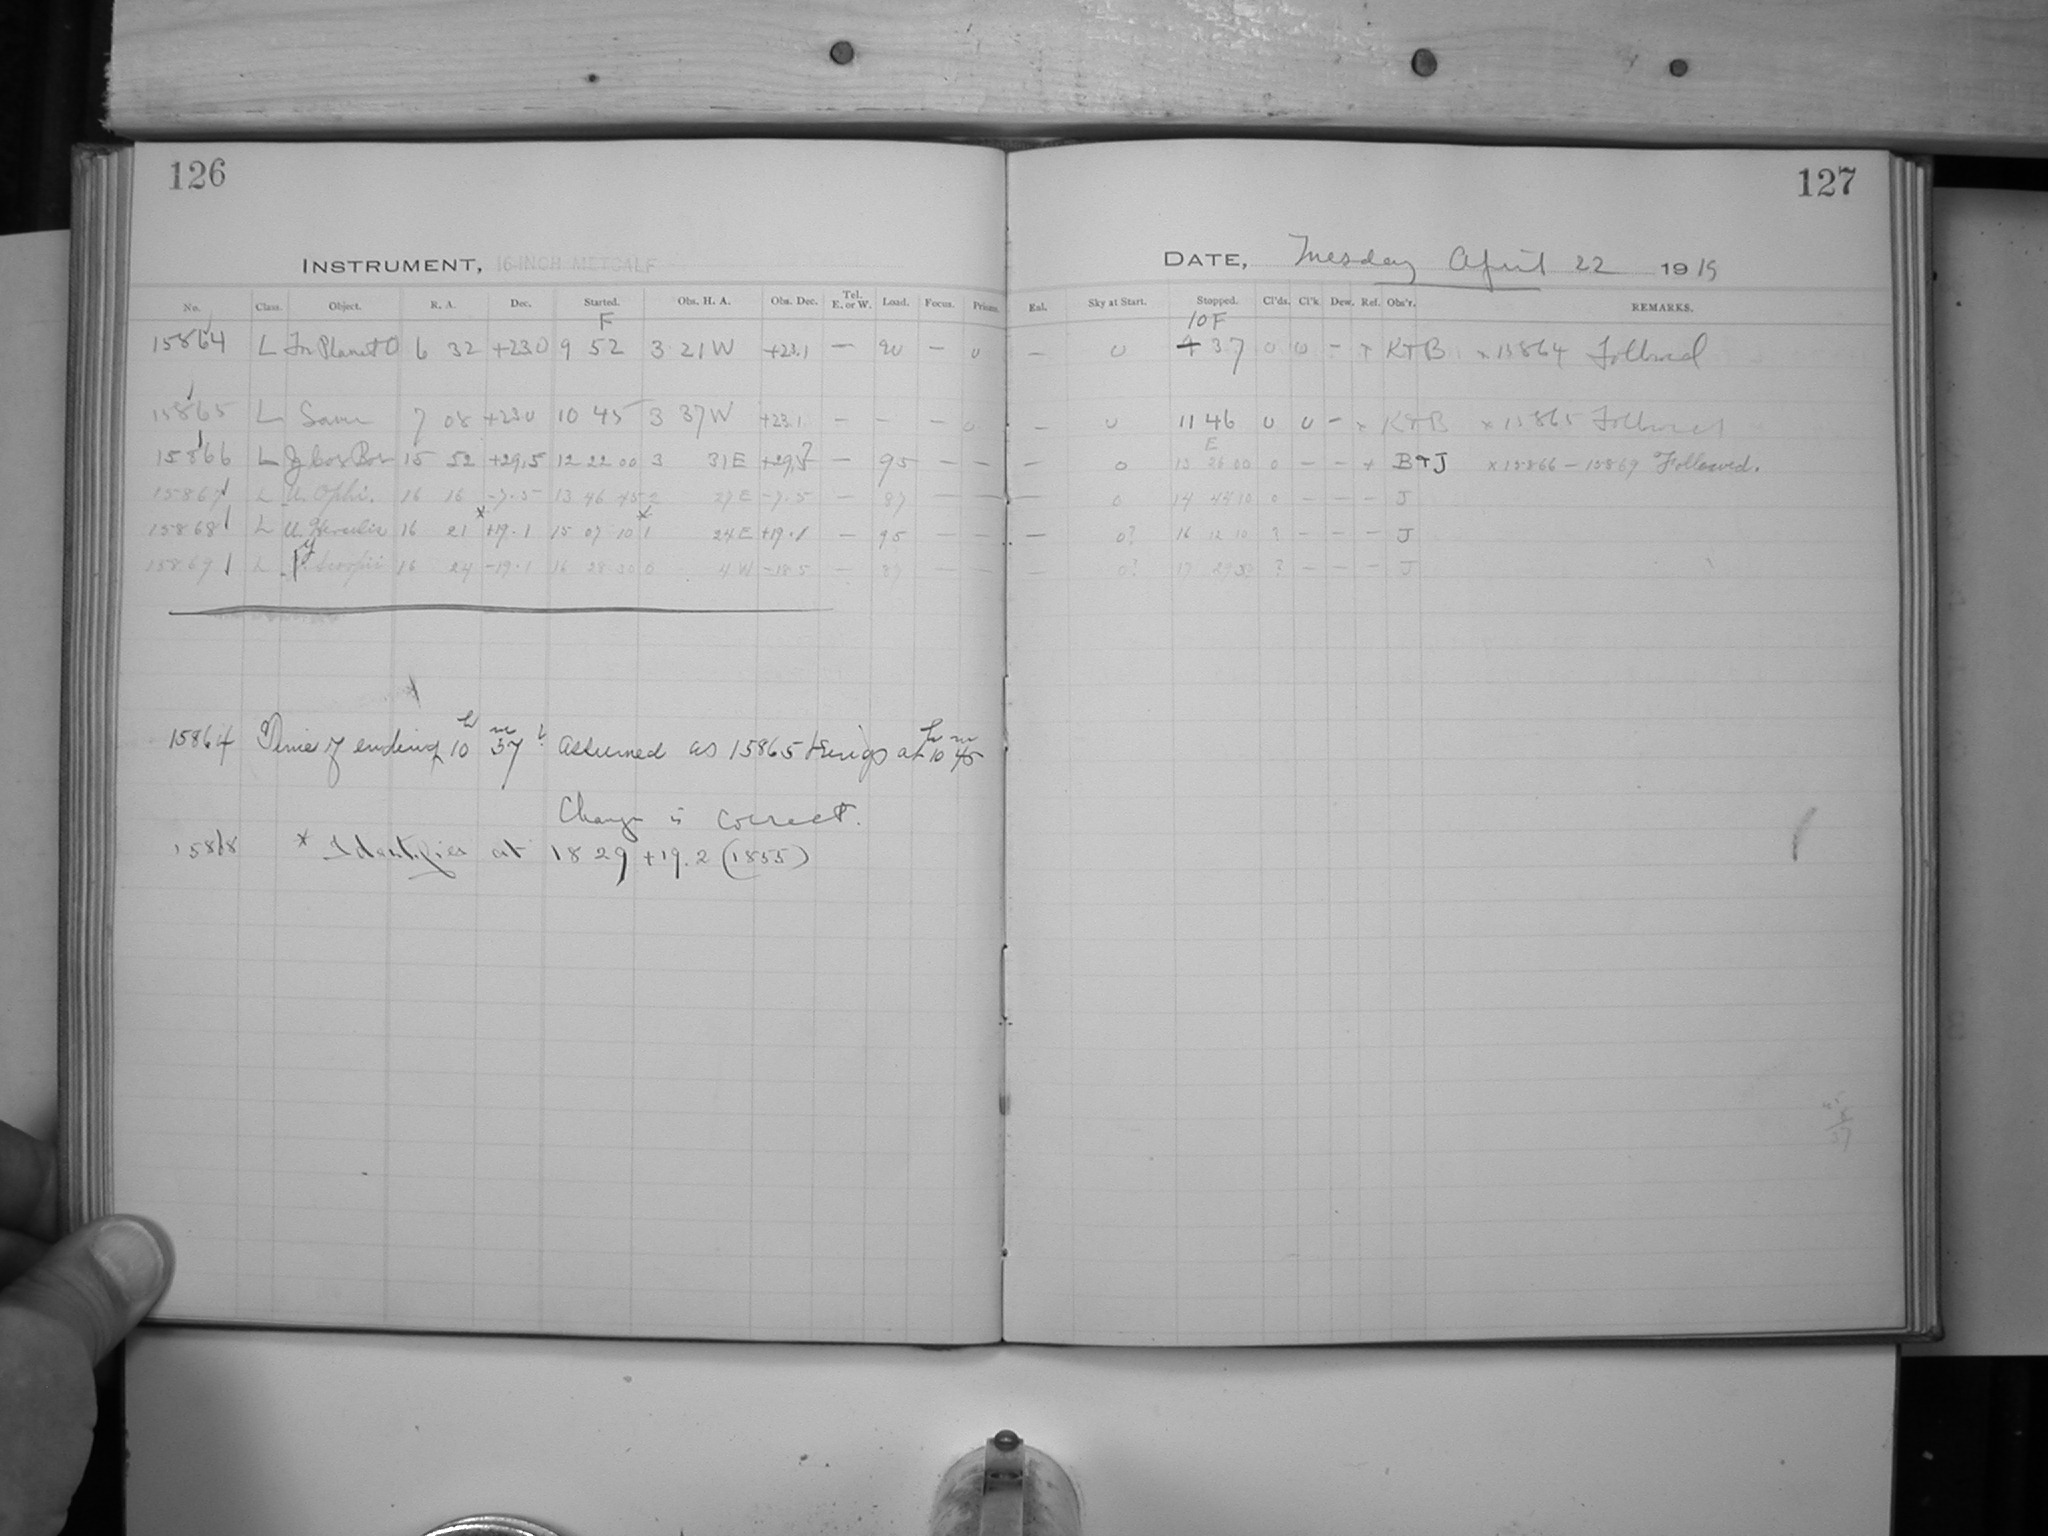 126
127
INSTRUMENT, 16-INCH METCALF
DATE, Tuesday April 22 1919
No. Class. Object. R. A. Dec. Started. Obs. H. A. Obs. Dec. Tel. E. or W. Load. Focus. Prisms. Enl. Sky at Start. Stopped. Cl'ds. Cl'k. Dew. Ref. Obs'r. REMARKS.
F 10 F
15864 L Tr Planet O 6 32 +23.0 9 52 3 21 W +23.1 — 90 — 0 — 0 37 0 0 - x K+B x 15864 Followed
15865 L Same 7 08 +23.0 10 45 3 37 W +23.1 — — — 0 — 0 11 46 0 0 - x K+B x 15865 Followed
E
15866 L Cor Bor 15 52 +29.5 12 22 00 3 31 E +29.5? — 95 — — — 0 13 26 00 0 — — x B+J x 15866 - 15869 Followed.
15867 L U. Ophi. 16 16 -7.5 13 46 45 2 27 E -7.5 — 87 — — — 0 14 44 10 0 — — — J
15868 L U. Herculis 16 21 * +19.1 15 07 10 * 1 24 E +19.1 — 95 — — — 0? 16 12 10 ? — — — J
15869 L Scorpii 16 24 -19.1 16 28 30 0 4 W -18.5 — 87 — — — 0? 17 29 30 ? — — — J
15864 Time of ending 10h 37m ? assumed as 15865 brings at 10h 45m
Change is correct.
15868 * Identifies at 18 29 +19.2 (1855)